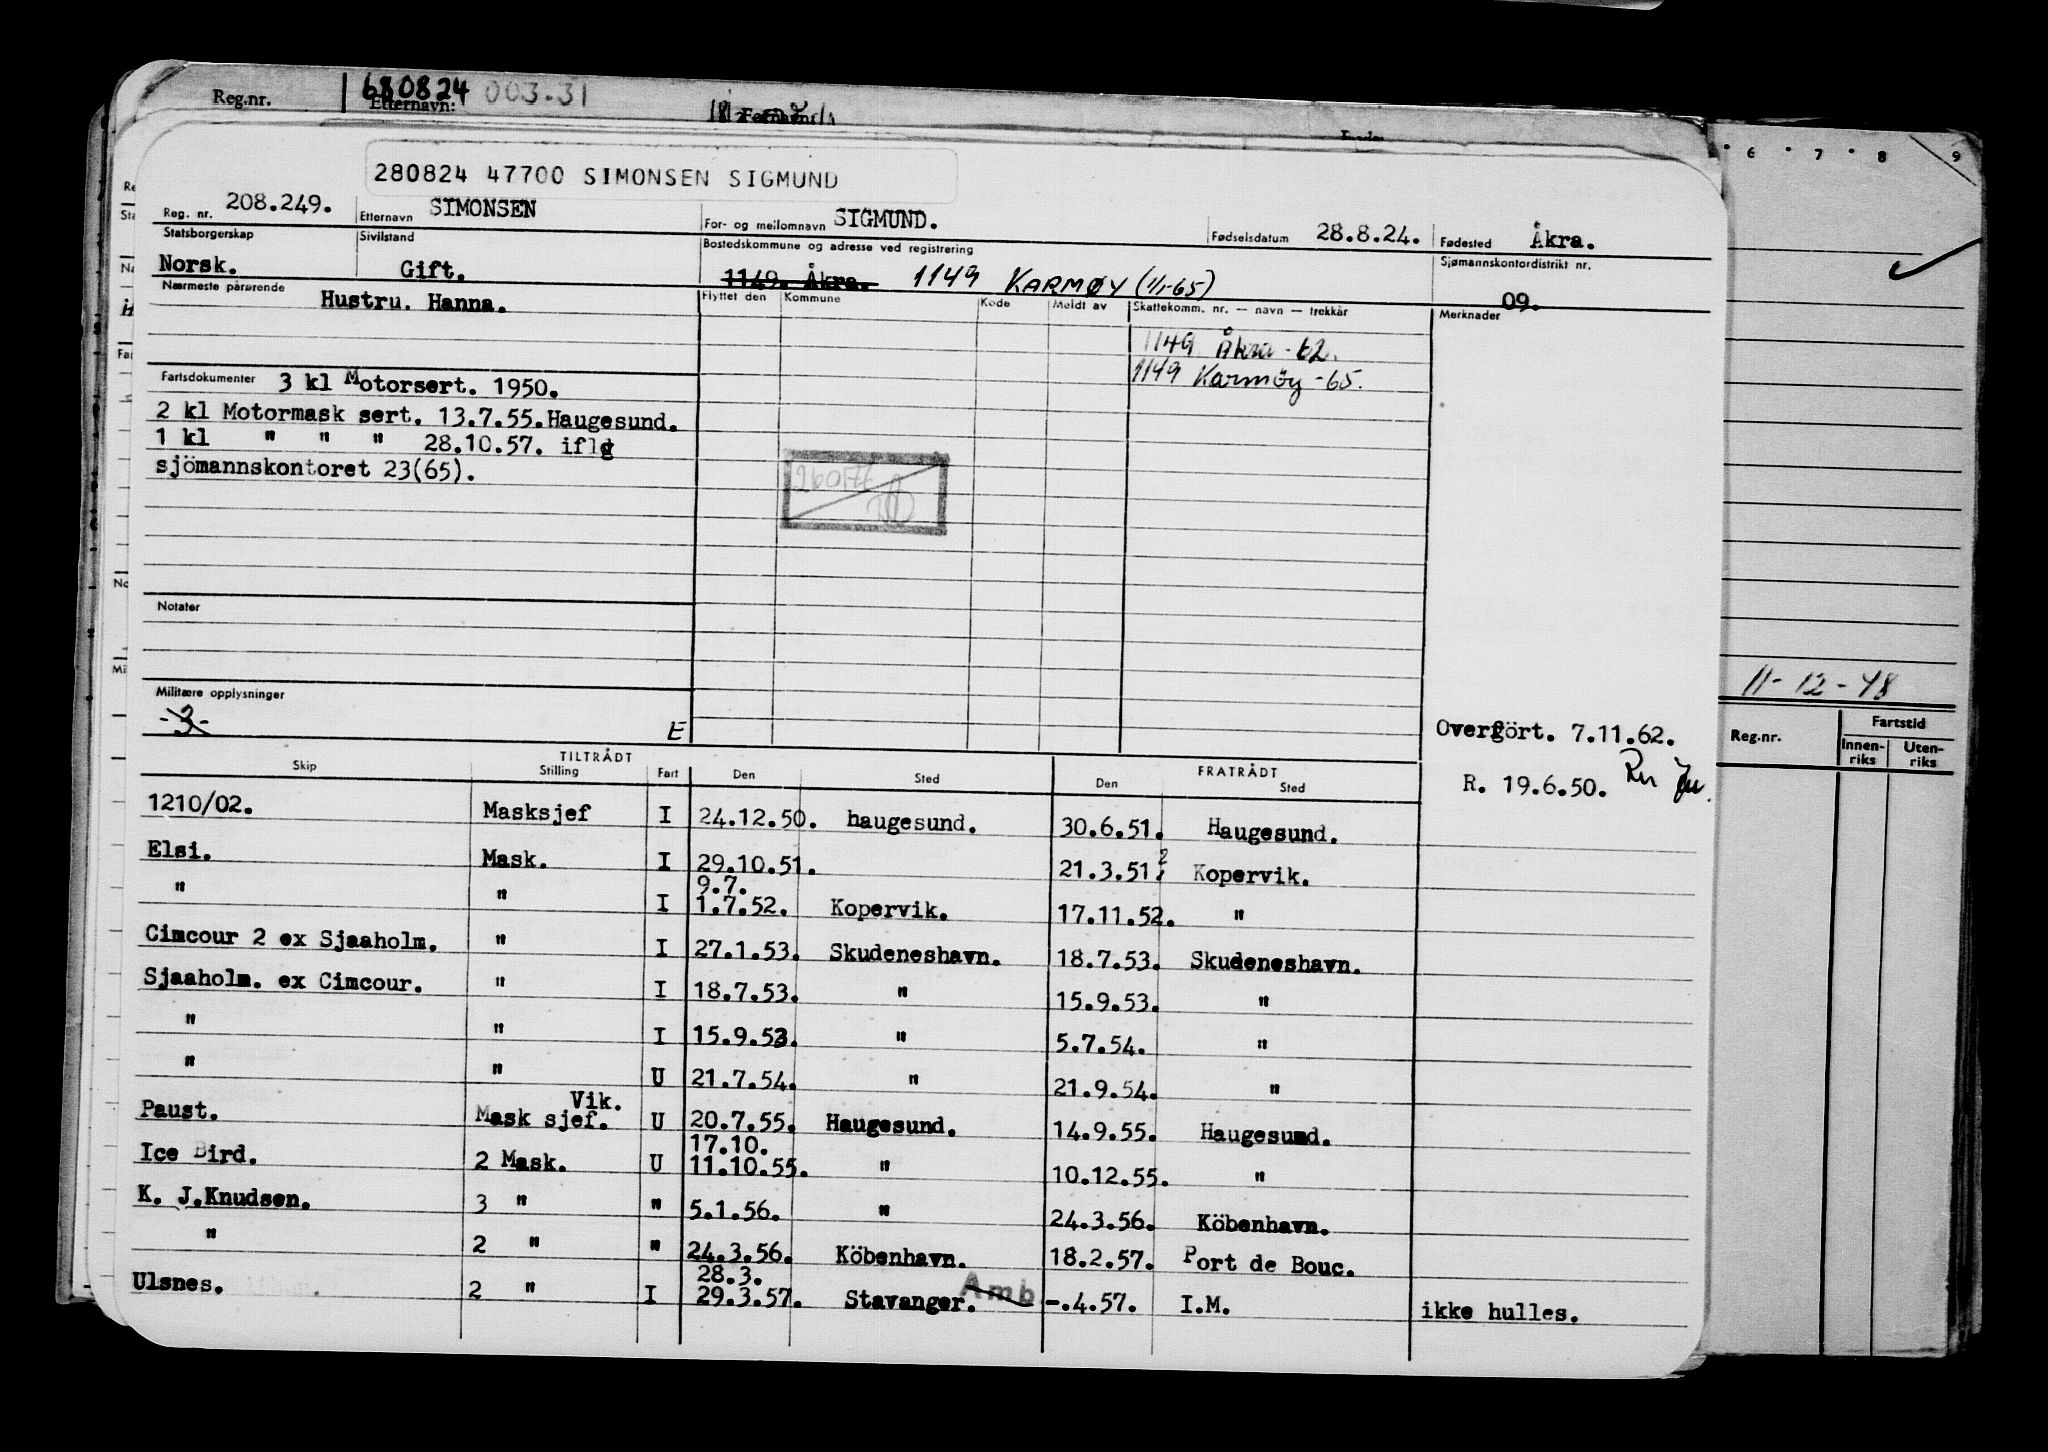 Reg.nr. 680824 003.31
Etternavn:
Fornavn:
280824 47700 SIMONSEN SIGMUND
Reg. nr. 208.249. Etternavn SIMONSEN For- og mellomnavn SIGMUND. Fødselsdatum 28.8.24. Fødested Åkra.
Statsborgerskap Sivilstand Bostedskommune og adresse ved registrering Sjømannskontordistrikt nr.
Norsk. Gift. 1149. Åkra. 1149 KARMØY (1/1-65) 09.
Nærmeste pårørende Flyttet den Kommune Kode Meldt av Skattekomm. nr. — navn — trekkår Merknader
Hustru. Hanna.
1149 Åkra -62.
1149 Karmøy -65.
Fartsdokumenter 3 kl Motorsert. 1950.
2 kl Motormask sert. 13.7.55.Haugesund.
1 kl " " " 28.10.57. iflg
sjömannskontoret 23(65).
Notater
Militære opplysninger
-3- E
Overfört. 7.11.62.
R. 19.6.50.
TILTRÅDT FRATRÅDT
Skip Stilling Fart Den Sted Den Sted
1210/02. Masksjef I 24.12.50. haugesund. 30.6.51. Haugesund.
Elsi. Mask. I 29.10.51. 21.3.51. 2 Kopervik.
9.7.
" " I 1.7.52. Kopervik. 17.11.52. "
Cimcour 2 ex Sjaaholm. " I 27.1.53. Skudeneshavn. 18.7.53. Skudeneshavn.
Sjaaholm. ex Cimcour. " I 18.7.53. " 15.9.53. "
" " I 15.9.53. " 5.7.54. "
" " U 21.7.54. " 21.9.54. "
Vik.
Paust. Mask sjef. U 20.7.55. Haugesund. 14.9.55. Haugesund.
17.10.
Ice Bird. 2 Mask. U 11.10.55. " 10.12.55. "
K. J.Knudsen. 3 " " 5.1.56. " 24.3.56. Köbenhavn.
" 2 " " 24.3.56. Köbenhavn. 18.2.57. Port de Bouc.
28.3.
Ulsnes. 2 " I 29.3.57. Stavanger. Amb -.4.57. I.M. ikke hulles.
6 7 8 9
11-12-48
Reg.nr. Fartstid
Innen-riks Uten-riks